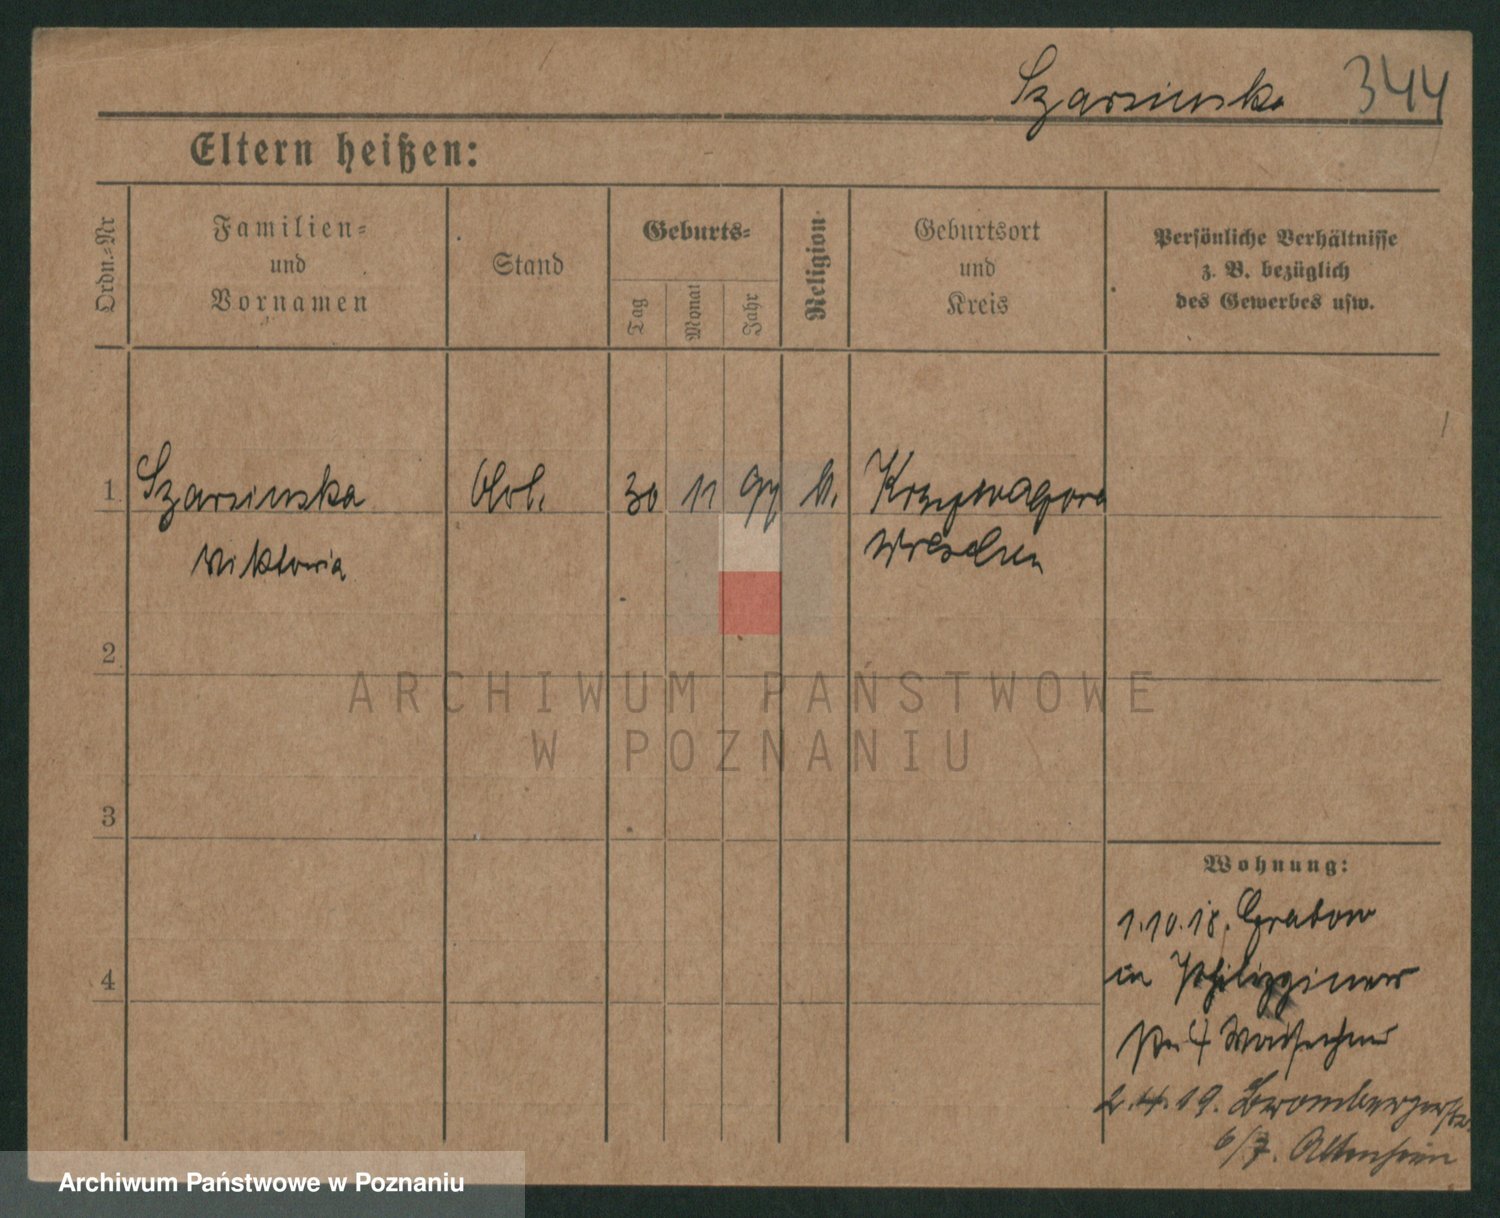 Szarsinska 344
Eltern heißen:
Ordn.-Nr
Familien-
und
Vornamen
Stand
Geburts-
Tag
Monat
Jahr
Religion
Geburtsort
und
Kreis
Persönliche Verhältnisse
z. B. bezüglich
des Gewerbes usw.
1 Szarsinska Arb. 30 11 97 k.
Viktoria Wreschen
2
3
4
Wohnung:
1.10.18. Grabow
in Philippiner
2.4.19. Brombergerstr.
6/7. Altenheim
ARCHIWUM PAŃSTWOWE
W POZNANIU
Archiwum Państwowe w Poznaniu